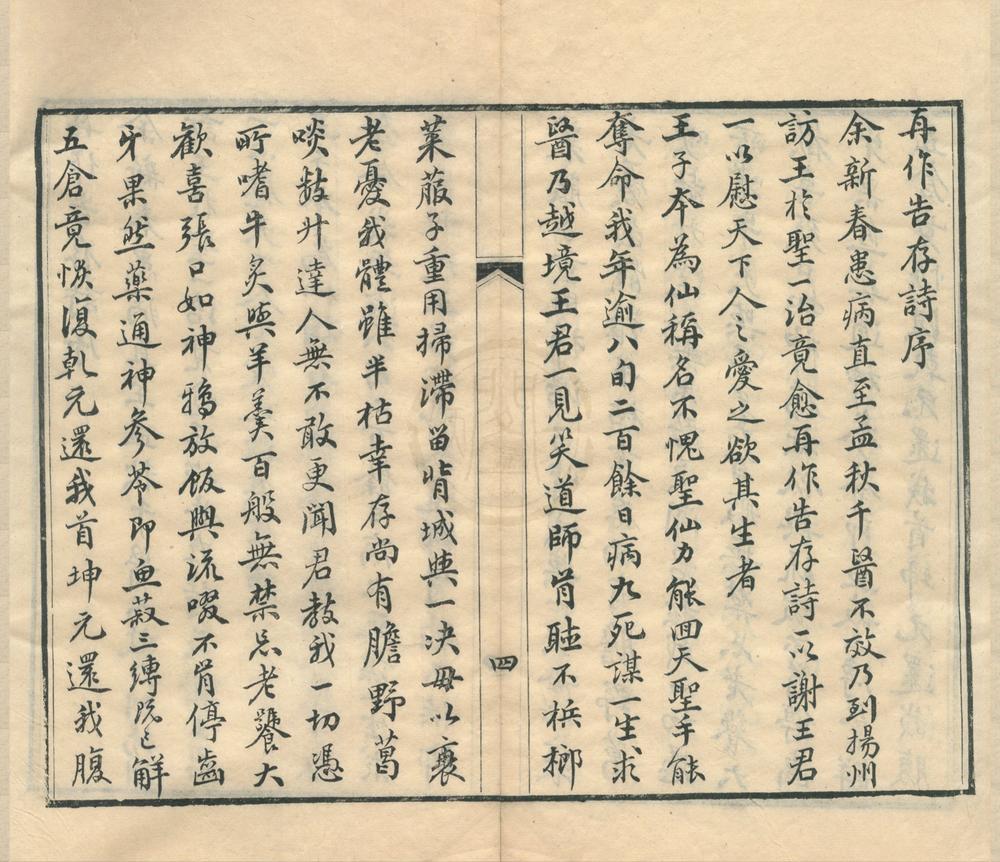 再作告存詩序
余新春患病直至孟秋千醫不效乃到揚州
訪王於聖一治竟愈再作告存詩一以謝王君
一以慰天下人之愛之欲其生者
王子本為仙稱名不愧聖仙力能囬天聖手能
奪命我年逾八旬二百餘日病九死謀一生求
醫乃越境王君一見笑道師胃聩不梹榔
四
菜菔子重用掃滯留背城與一决毋以衰
老憂我體雖半枯幸存尚有膽野葛
啖數升達人無不敢更聞君教我一切憑
所嗜牛炙與羊羹百般無禁忌老饕大
歡喜張口如神鴉放飯與流啜不肯停齒
牙果然藥通神參苓即魚菽三縛既已解
五倉竟恢復乾元還我首坤元還我腹